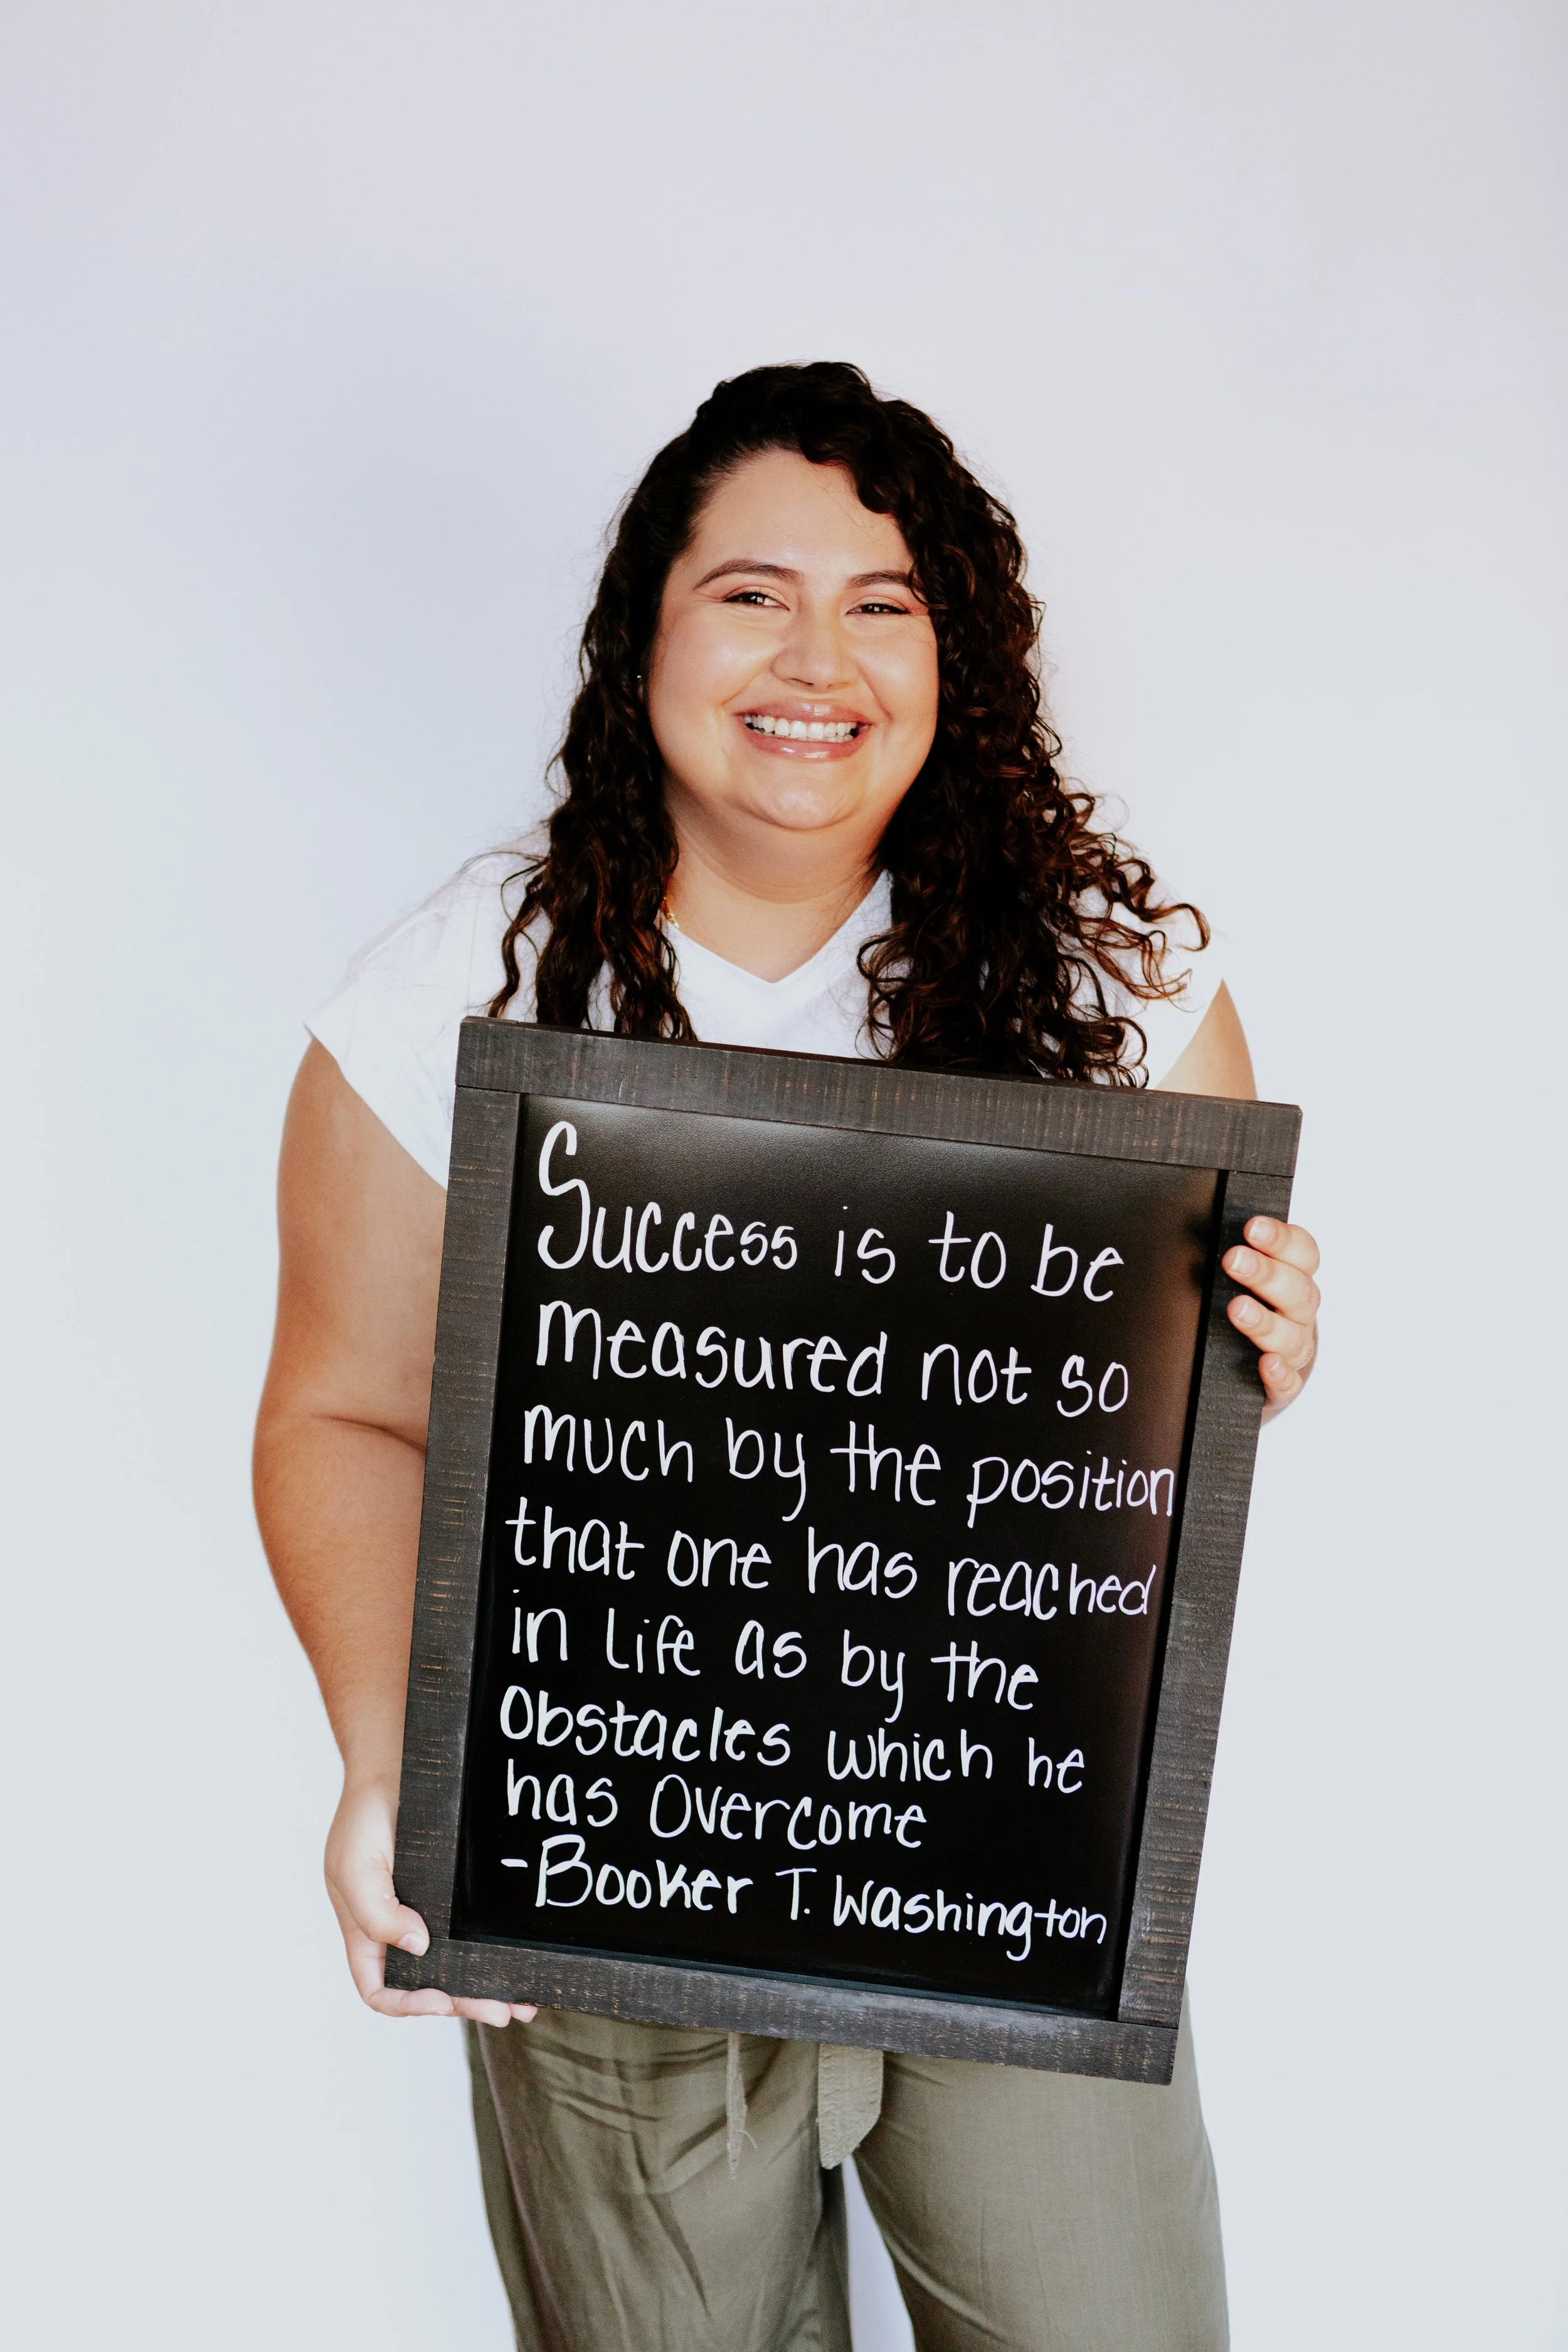 Success is to be
measured not so
much by the position
that one has reached
in life as by the
obstacles which he
has overcome
-Booker T. Washington